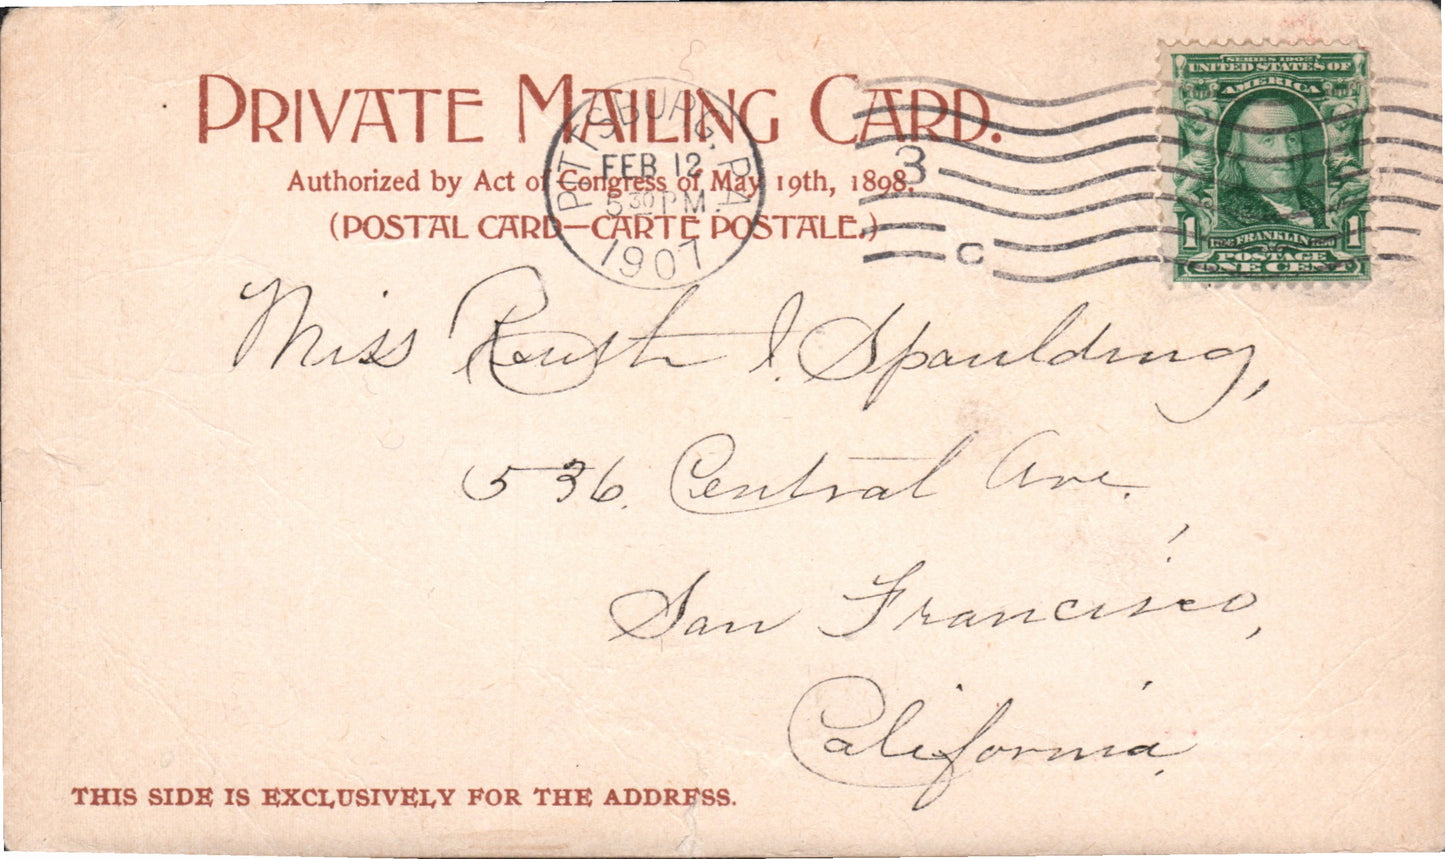 PRIVATE MAILING CARD.
Authorized by Act of Congress of May 19th, 1898.
(POSTAL CARD—CARTE POSTALE.)
PITTSBURG, PA
FEB 12
5 30 PM.
1907
3
C
SERIES 1902
UNITED STATES OF
AMERICA
1 1
1706 FRANKLIN 1790
POSTAGE
ONE CENT
Miss Ruth I. Spaulding,
536. Central Ave.
San Francisco,
California.
THIS SIDE IS EXCLUSIVELY FOR THE ADDRESS.